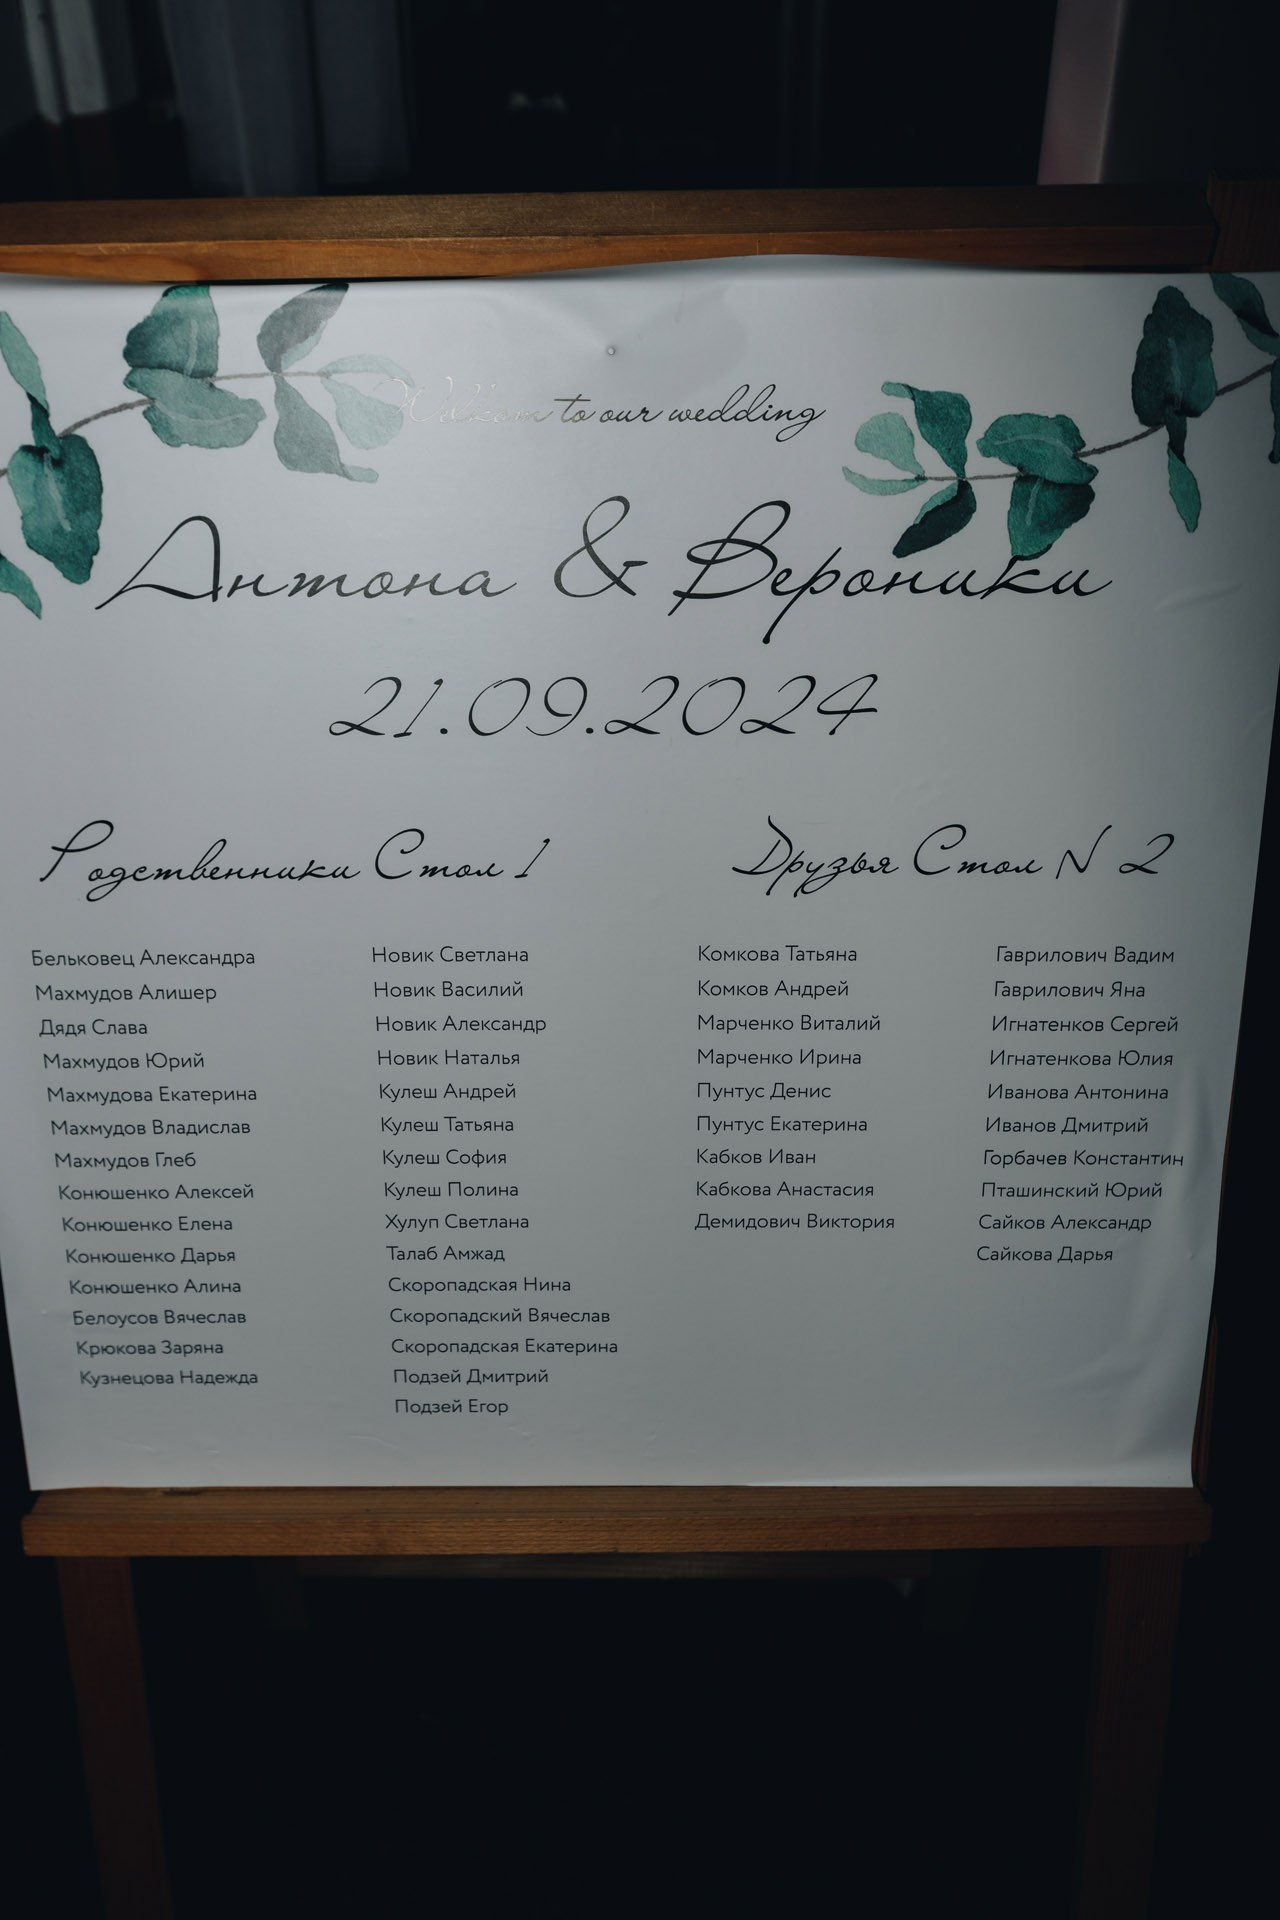 Welcom to our wedding
Антона & Вероники
21.09.2024
Родственники Стол 1
Бельковец Александра
Махмудов Алишер
Дядя Слава
Махмудов Юрий
Махмудова Екатерина
Махмудов Владислав
Махмудов Глеб
Конюшенко Алексей
Конюшенко Елена
Конюшенко Дарья
Конюшенко Алина
Белоусов Вячеслав
Крюкова Заряна
Кузнецова Надежда
Новик Светлана
Новик Василий
Новик Александр
Новик Наталья
Кулеш Андрей
Кулеш Татьяна
Кулеш София
Кулеш Полина
Хулуп Светлана
Талаб Амжад
Скоропадская Нина
Скоропадский Вячеслав
Скоропадская Екатерина
Подзей Дмитрий
Подзей Егор
Друзья Стол N 2
Комкова Татьяна
Комков Андрей
Марченко Виталий
Марченко Ирина
Пунтус Денис
Пунтус Екатерина
Кабков Иван
Кабкова Анастасия
Демидович Виктория
Гаврилович Вадим
Гаврилович Яна
Игнатенков Сергей
Игнатенкова Юлия
Иванова Антонина
Иванов Дмитрий
Горбачев Константин
Пташинский Юрий
Сайков Александр
Сайкова Дарья